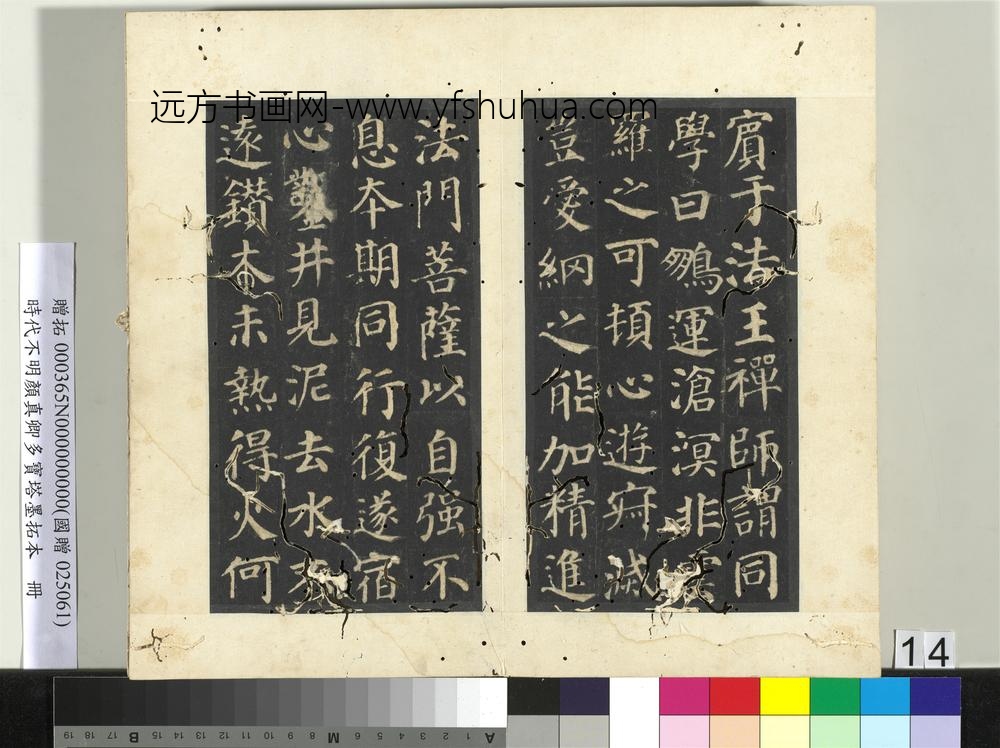 远方书画网-www.yfshuhua.com
賓于法王禪師謂同
學曰鵬運滄溟非雲
羅之可頓心遊寂滅
豈愛網之能加精進
法門菩薩以自强不
息夲期同行復遂宿
心鑿井見泥去水不
遠鑽木未熱得火何
贈拓 000365N000000000(國贈 025061)
時代不明顏真卿多寶塔墨拓本 冊
14
19 18 17 16 15 14 13 12 11 10 9 8 7 6 5 4 3 2 1
B M A